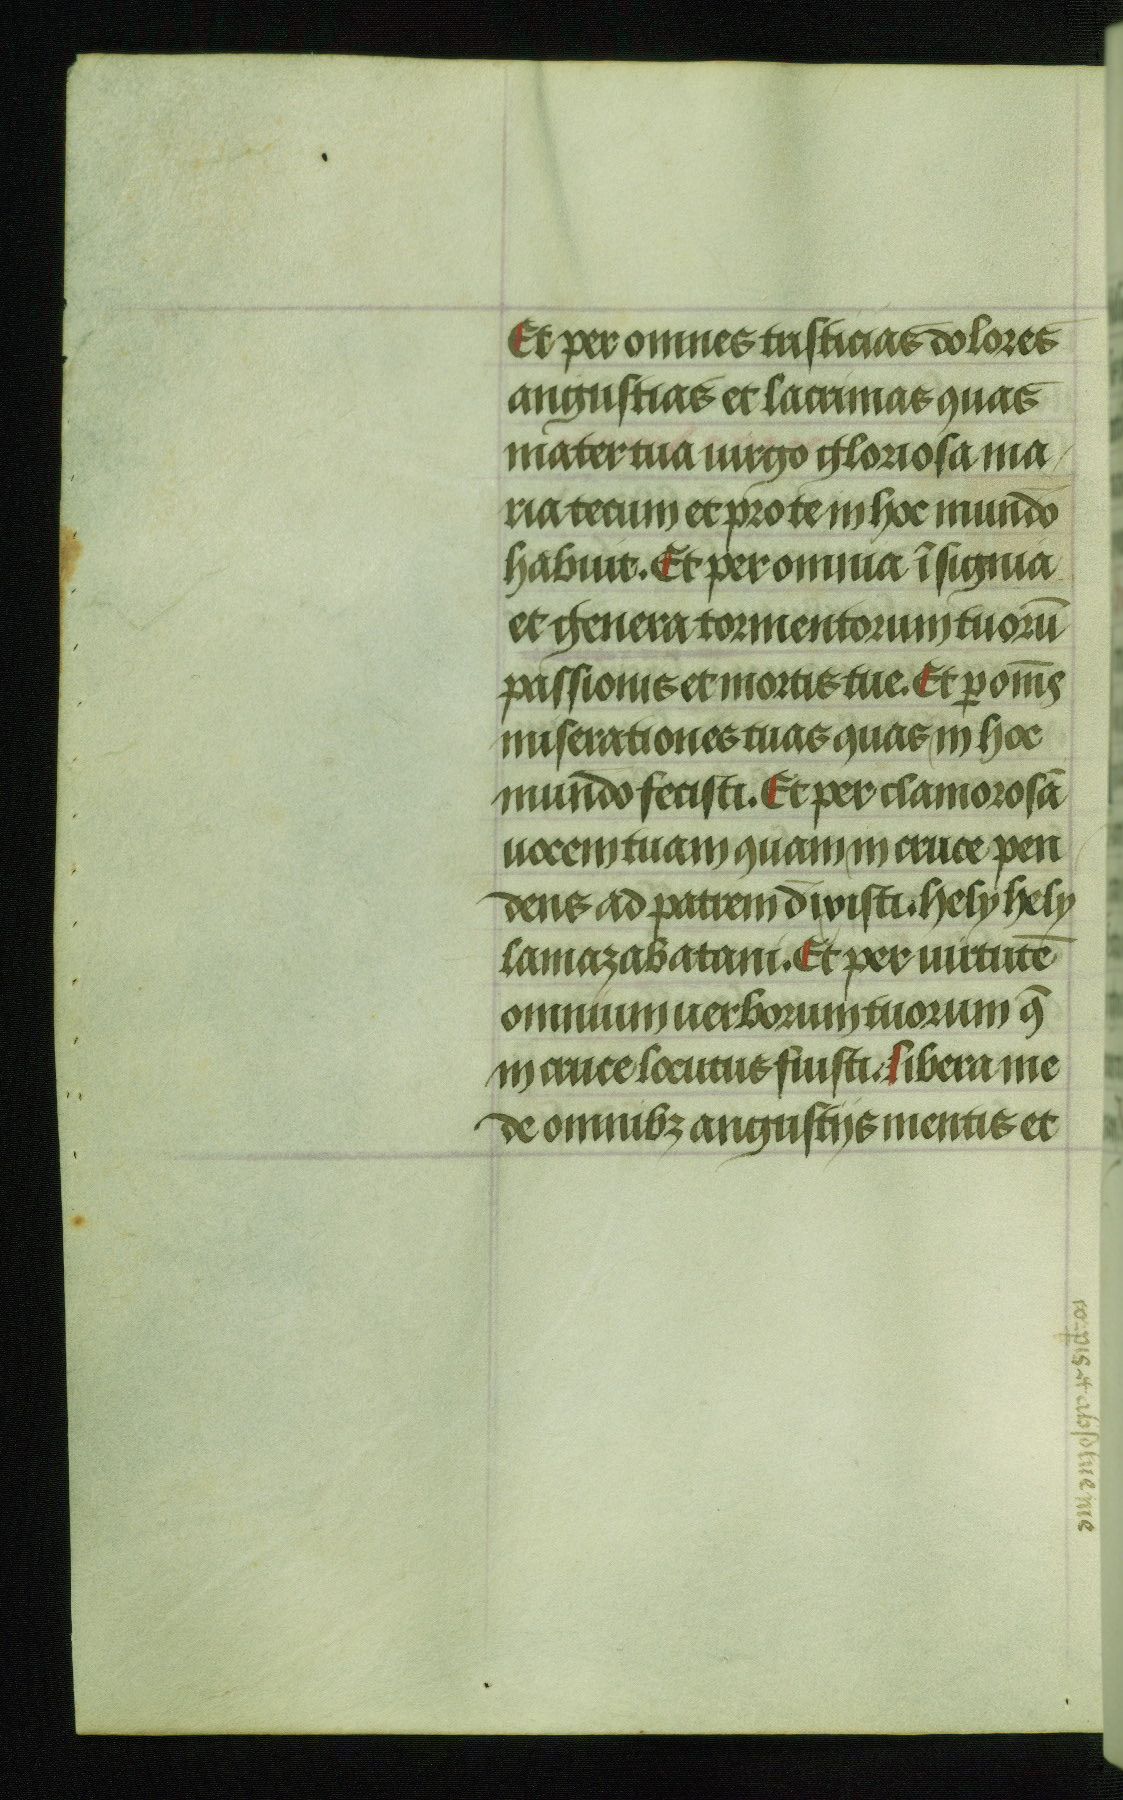 Et per omnes tristicias dolores
angustias et lacrimas quas
mater tua uirgo gloriosa ma
ria tecum et pro te in hoc mundo
habuit. Et per omnia īsignia
et genera tormentorum tuorū
passionis et mortis tue. Et ꝑ om̄s
miserationes tuas quas in hoc
mundo fecisti. Et per clamorosā
uocem tuam quam in cruce pen
dens ad patrem dixisti. hely hely
lamazabatani. Et per uirtutē
omnium uerborum tuorum q̄
in cruce locutus fuisti. Libera me
de omnibꝫ angustijs mentis et
corꝑis et absolue me